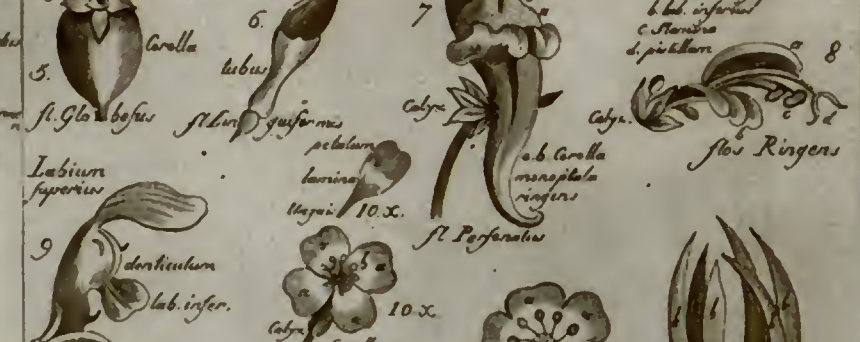 5.
Corolla
fl. Globosus
6.
tubus
fl. Linguiformis
7
a
Calyx
a.b. Corolla
monopetala
ringens
fl. Personatus
b. lab. inferius
c. Stamina
d. pistillum
8
Calyx.
a
b
c
d
flos Ringens
Labium
superius
9
denticulum
lab. infer.
petalum
lamina
Unguis
10. x.
a
b
a
a
10 x.
Calyx
Corolla
a
b
l
b